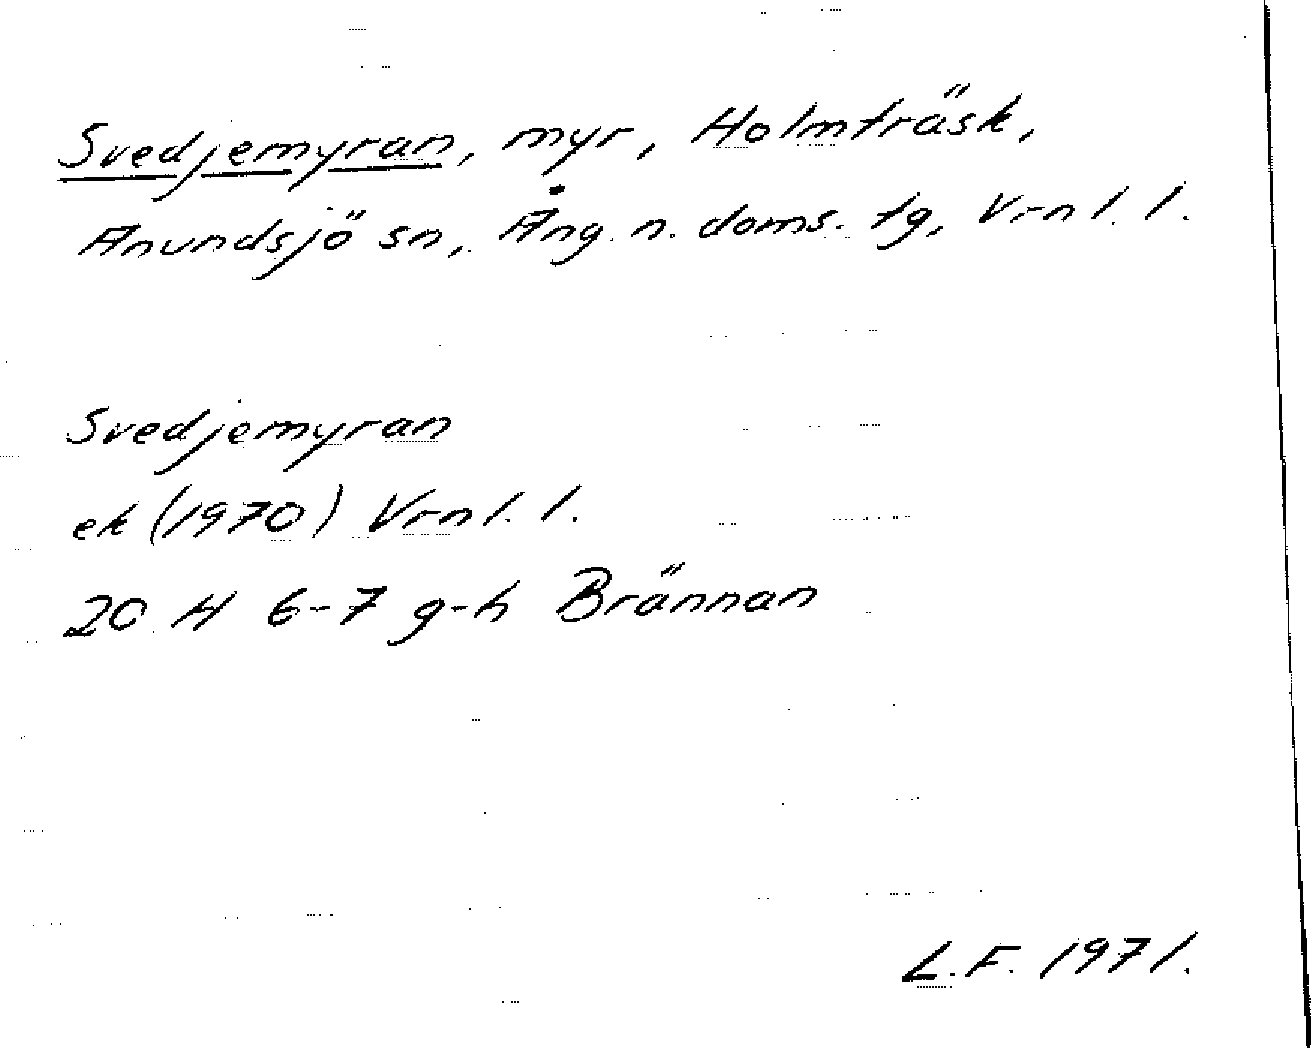 Svedjemyran, myr, Holmträsk,
Anundsjö sn, Ång. n. doms. tg, Vrnl. l.
Svedjemyran
ek (1970) Vrnl. l.
20 H 6-7 g-h Brännan
L.F. 1971.